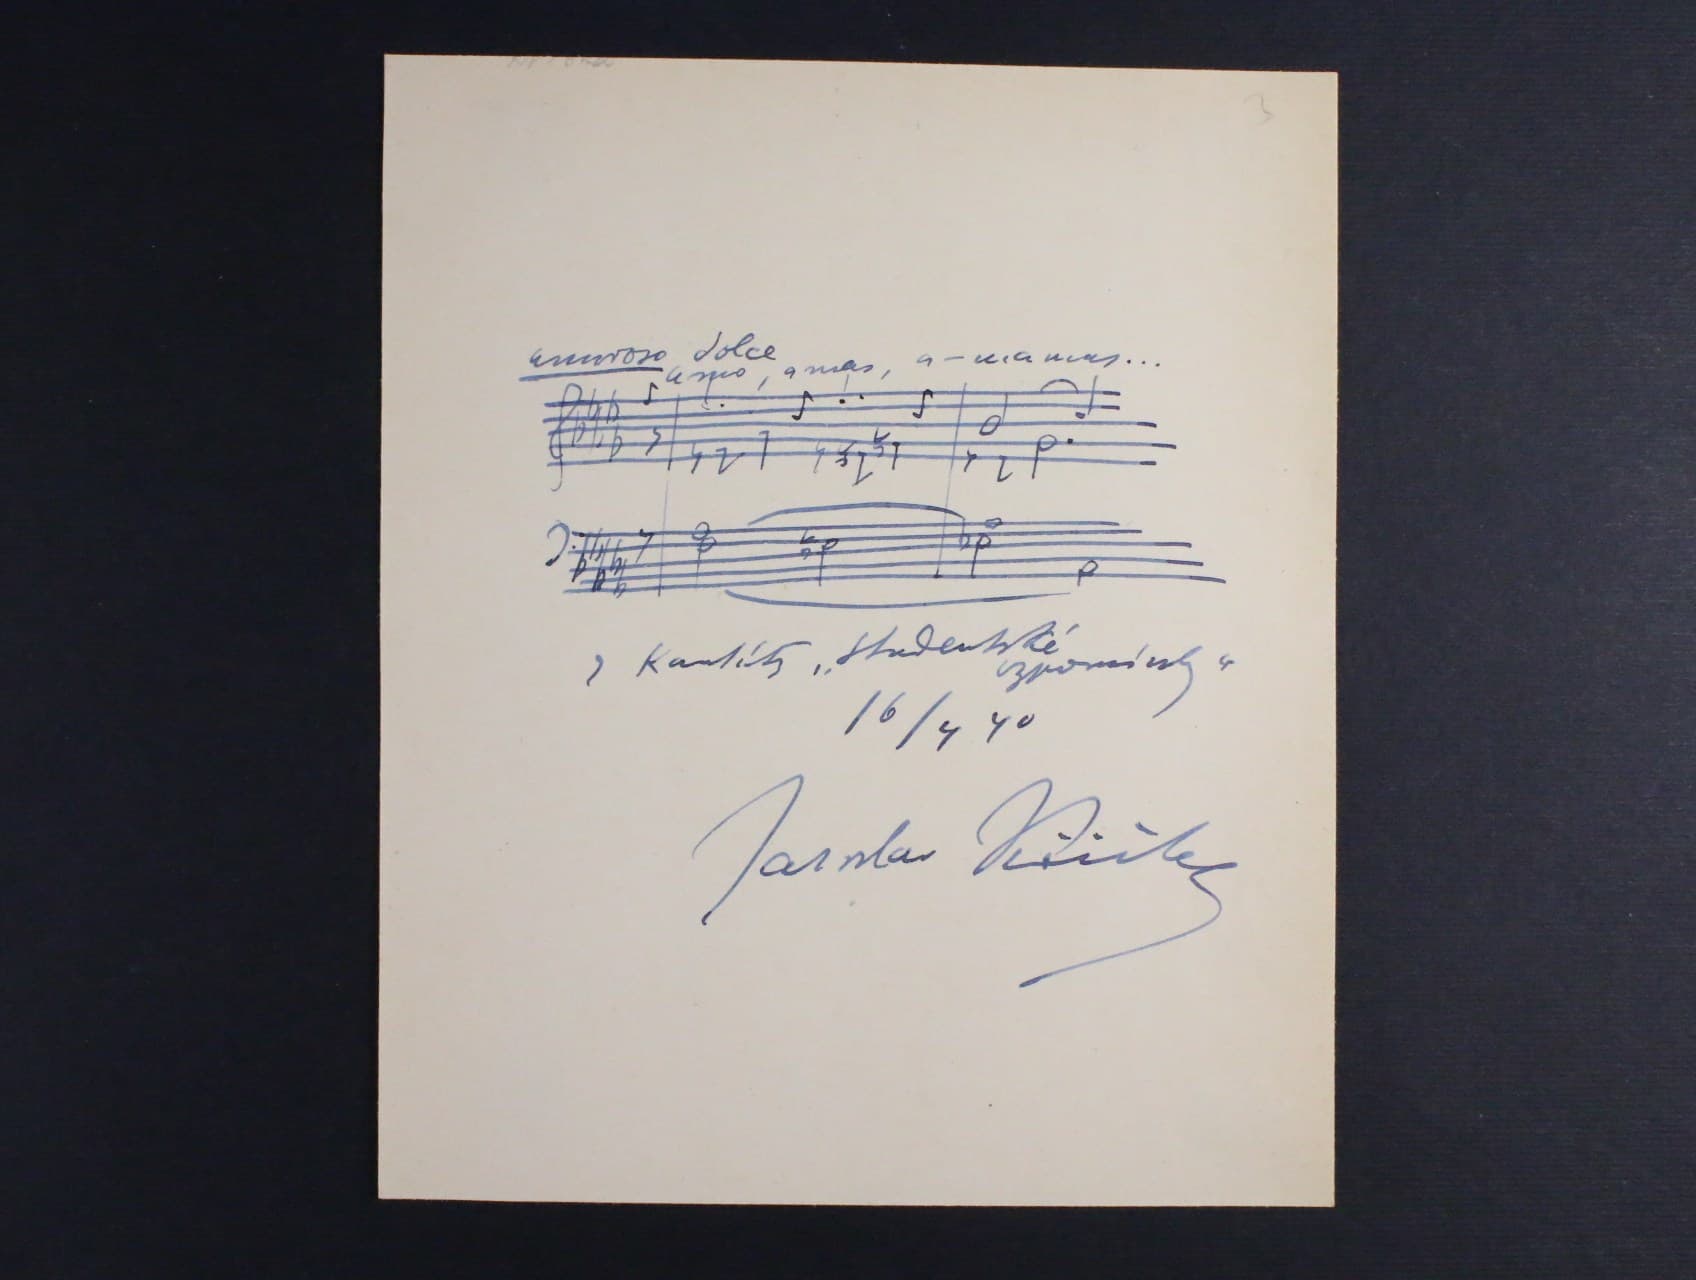 3
amoroso dolce
amo, amas, a-mamus...
z Kantáty „Studentské
vzpomínky“
16/4 40
Jaroslav Křička